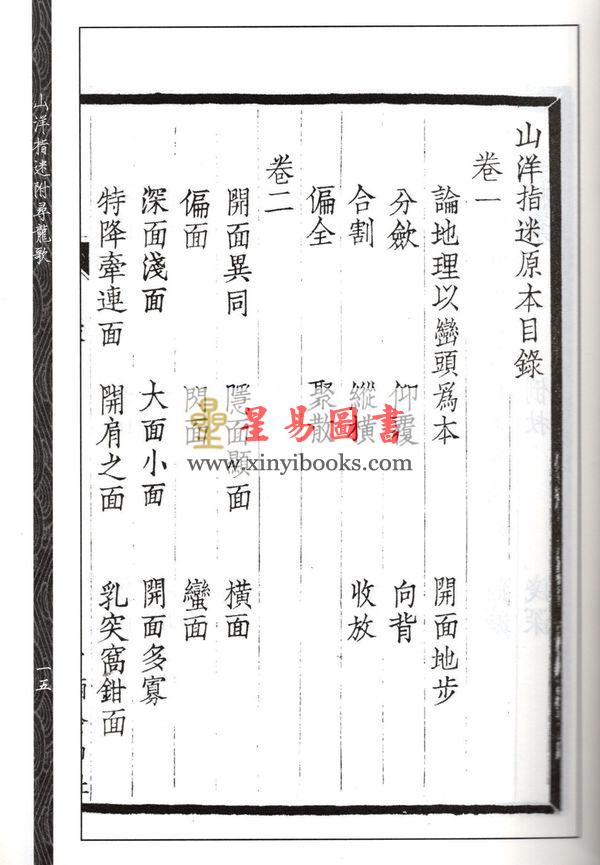 山洋指迷原本目錄
卷一
論地理以巒頭爲本 開面地步
分斂 仰覆 向背
合割 縱橫 收放
偏全 聚散
卷二
開面異同 隱面顯面 橫面
偏面 閃面 蠻面
深面淺面 大面小面 開面多寡
特降牽連面 開肩之面 乳突窩鉗面
山洋指迷附尋龍歌
一五
星易圖書
www.xinyibooks.com